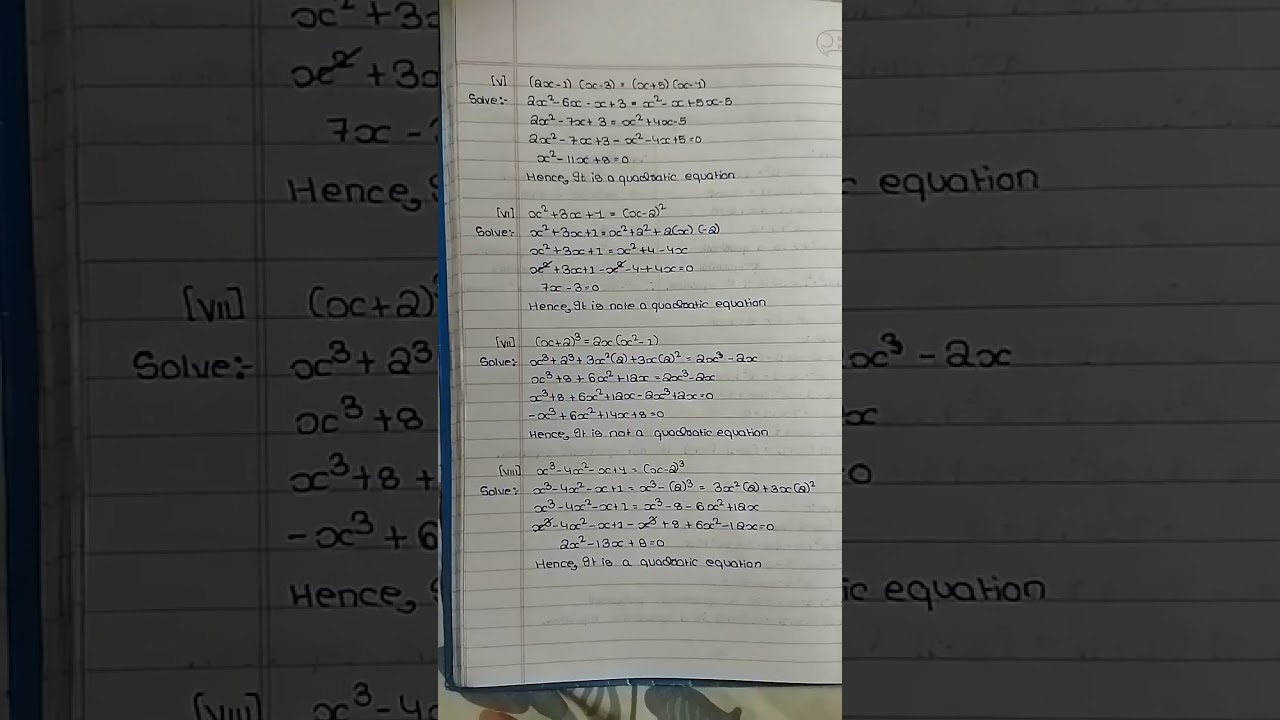 [V] (2x-1) (x-3) = (x+5) (x-1)
Solve:- 2x²-6x-x+3 = x²-x+5x-5
2x²-7x+3 = x²+4x-5
2x²-7x+3-x²-4x+5=0
x²-11x+8=0
Hence, It is a quadratic equation
[VI] x²+3x+1 = (x-2)²
Solve:- x²+3x+1=x²+2²+2(x) (-2)
x²+3x+1 = x²+4-4x
x²+3x+1-x²-4+4x=0
7x-3=0
Hence, It is note a quadratic equation
[VII] (x+2)³=2x(x²-1)
Solve:- x³+2³+3x²(2)+3x(2)²=2x³-2x
x³+8+6x²+12x=2x³-2x
x³+8+6x²+12x-2x³+2x=0
-x³+6x²+14x+8=0
Hence, It is not a quadratic equation
[VIII] x³-4x²-x+1 = (x-2)³
Solve:- x³-4x²-x+1 = x³-(2)³ = 3x²(2)+3x(2)²
x³-4x²-x+1 = x³-8-6x²+12x
x³-4x²-x+1-x³+8+6x²-12x=0
2x²-13x+8=0
Hence, It is a quadratic equation